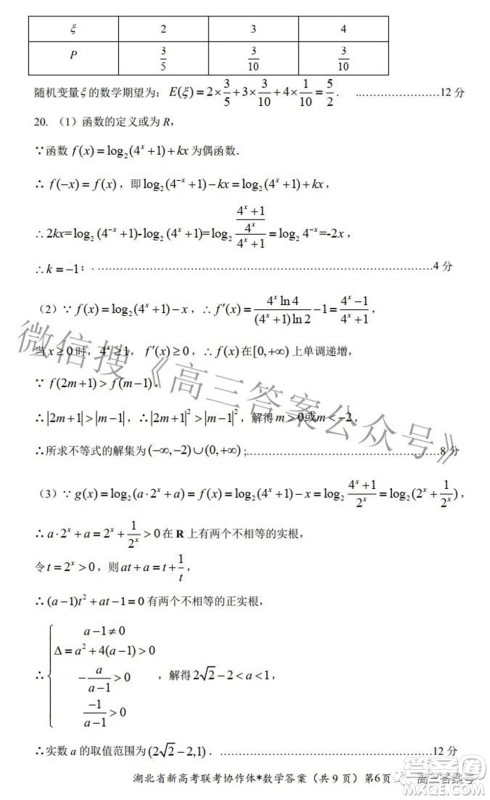 ξ 2 3 4
P 3/5 3/10 3/10
随机变量ξ的数学期望为：E(ξ)=2×3/5+3×3/10+4×1/10=5/2. ………………12 分
20. （1）函数的定义或为 R，
∵函数 f(x)=log₂(4ˣ+1)+kx 为偶函数．
∴ f(−x)=f(x)，即 log₂(4⁻ˣ+1)−kx=log₂(4ˣ+1)+kx，
∴2kx=log₂(4⁻ˣ+1)-log₂(4ˣ+1)=log₂((4ˣ+1)/4ˣ)/(4ˣ+1)=log₂4⁻ˣ=-2x，
∴k=−1；………………4 分
（2）∵ f(x)=log₂(4ˣ+1)−x，∴f′(x)=4ˣln4/((4ˣ+1)ln2)−1=(4ˣ−1)/(4ˣ+1)，
当 x≥0 时，4ˣ≥1，f′(x)≥0，∴f(x)在[0,+∞)上单调递增，
∵ f(2m+1)>f(m−1)．
∴|2m+1|>|m−1|，∴|2m+1|²>|m−1|²，解得 m>0或m<−2，
∴所求不等式的解集为(−∞,−2)∪(0,+∞)；………………8 分
（3）∵ g(x)=log₂(a·2ˣ+a)=f(x)=log₂(4ˣ+1)−x=log₂(4ˣ+1)/2ˣ=log₂(2ˣ+1/2ˣ)，
∴a·2ˣ+a=2ˣ+1/2ˣ>0 在 R 上有两个不相等的实根，
令 t=2ˣ>0，则 at+a=t+1/t，
∴(a−1)t²+at−1=0 有两个不相等的正实根，
∴{ a−1≠0
Δ=a²+4(a−1)>0
−a/(a−1)>0
−1/(a−1)>0 ，解得 2√2−2<a<1，
∴实数 a 的取值范围为(2√2−2,1)．………………12 分
湖北省新高考联考协作体*数学答案（共 9 页）第6页
高三答案号
微信搜《高三答案公众号》